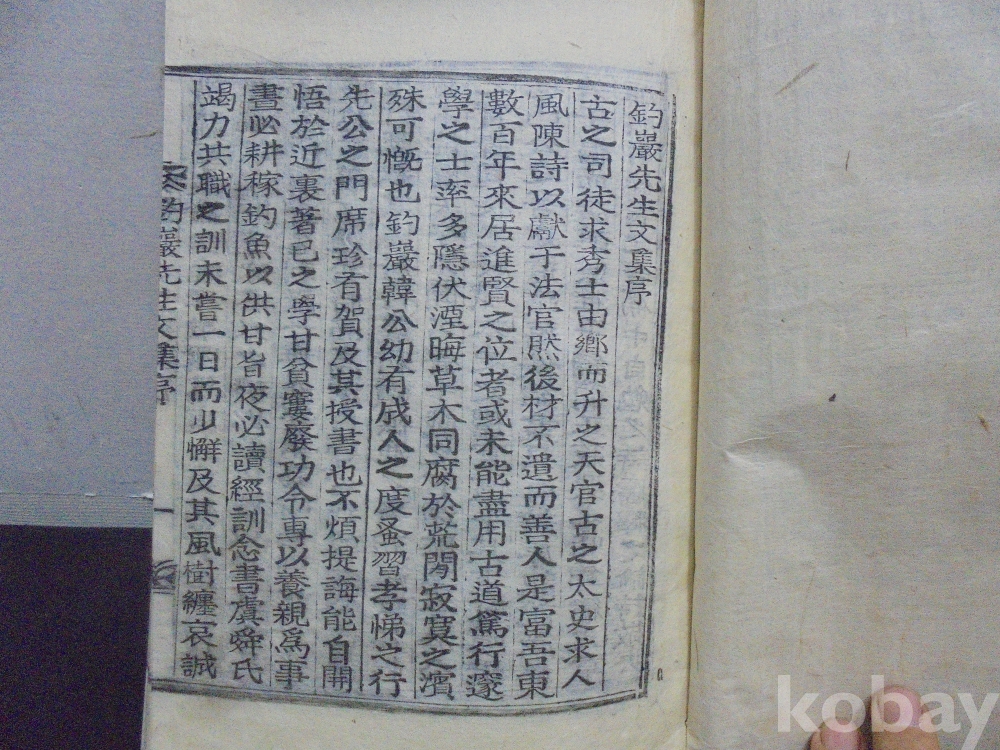 釣巖先生文集序
古之司徒求秀士由鄕而升之天官古之太史求人
風陳詩以獻于法官然後材不遺而善人是富吾東
數百年來居進賢之位者或未能盡用古道篤行邃
學之士率多隱伏湮晦草木同腐於荒閒寂寞之濱
殊可慨也釣巖韓公幼有成人之度蚤習孝悌之行
先公之門席珍有賀及其授書也不煩提誨能自開
悟於近裏著已之學甘貧窶廢功令專以養親爲事
晝必耕稼釣魚以供甘旨夜必讀經訓念書虞舜氏
竭力共職之訓未嘗一日而少懈及其風樹纏哀誠
釣巖先生文集序
一
kobay